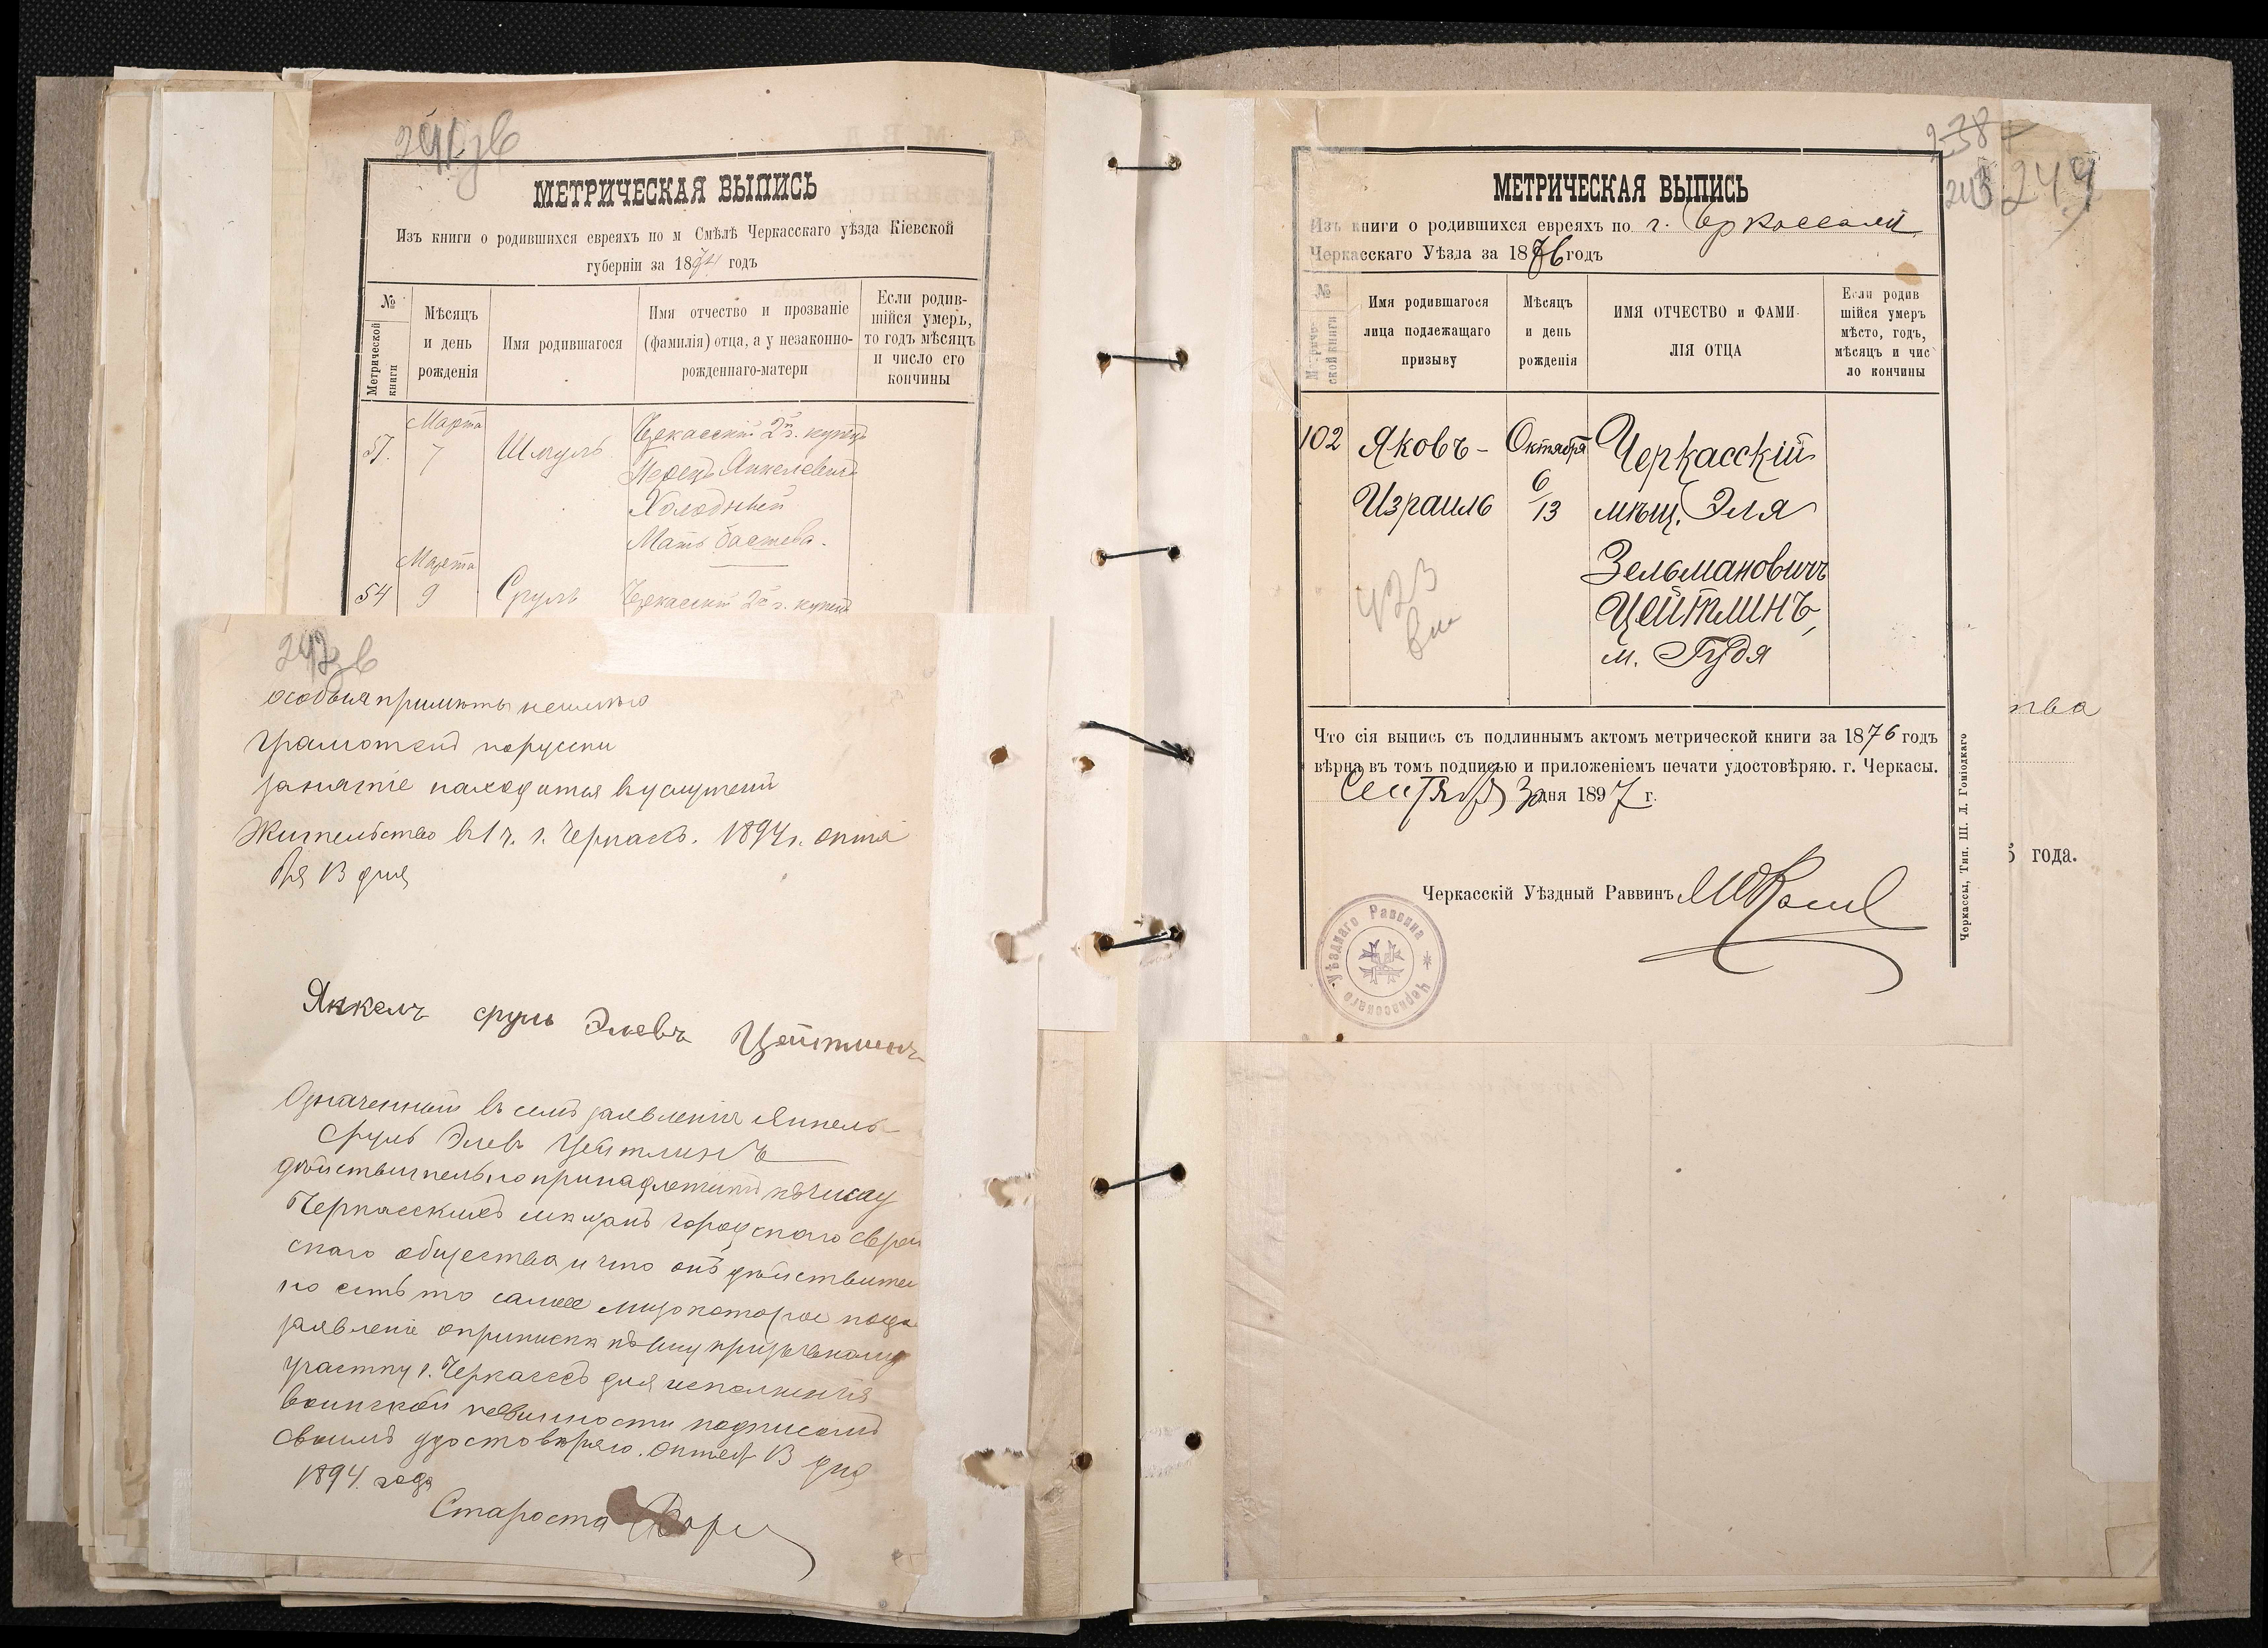 МЕТРИЧЕСКАЯ ВЫПИСЬ
Изъ книги о родившихся евреяхъ по м Смѣлѣ Черкасскаго уѣзда Кіевской
губерніи за 1894 годъ
№
Метрической книги
Мѣсяцъ и день рожденія
Имя родившагося
Имя отчество и прозваніе (фамилія) отца, а у незаконно-рожденнаго-матери
Если родив-шійся умеръ, то годъ мѣсяцъ и число его кончины
Марта
7
Шмуль
Черкасскій 2й г. купецъ
Янкелевичъ
Холодный
Мать
Марта
54 9 Сруль Черкасскій 2й г. купецъ
особыя примѣты неимѣю
грамотенъ порусски
занятіе находится вуслуженіи
Жительство в1 ч. г. Черкасъ. 1894 г. октя
бря 13 дня
Янкель сруль Элевъ Цейтлинъ
Означенный въ семъ заявленіи Янкель
Сруль Элевъ Цейтлинъ
дѣйствительно принадлежитъ къ числу
Черкасскихъ мѣщанъ городского еврей
скаго общества и что онъ дѣйствител
но есть то самое лицо которое пода
заявленіе оприпискѣ къ призывному
участку г. Черкассъ для исполненія
воинской повинности подписомъ
своимъ удостовѣряю. Октяб 13 дня
1894 года
Староста
238
243 244
МЕТРИЧЕСКАЯ ВЫПИСЬ
Изъ книги о родившихся евреяхъ по г. Черкассамъ
Черкасскаго Уѣзда за 1876 годъ
№
Метриче-ской книги
Имя родившагося лица подлежащаго призыву
Мѣсяцъ и день рожденія
ИМЯ ОТЧЕСТВО и ФАМИ-ЛІЯ ОТЦА
Если родив шійся умеръ мѣсто, годъ, мѣсяцъ и чис ло кончины
102 Яковъ- Октября Черкасскій
Израиль 6/13 мѣщ. Эля
Зельмановичъ
Цейтлинъ,
м. Гудя
423
Что сія выпись съ подлиннымъ актомъ метрической книги за 1876 годъ
вѣрна въ томъ подписью и приложеніемъ печати удостовѣряю. г. Черкасы.
Сентября 3 дня 1897 г.
Черкасскій Уѣздный Раввинъ
Черкасскаго Уѣзднаго Раввина
Черкассы, Тип. Ш. Л. Гоміодкаго
тва
5 года.